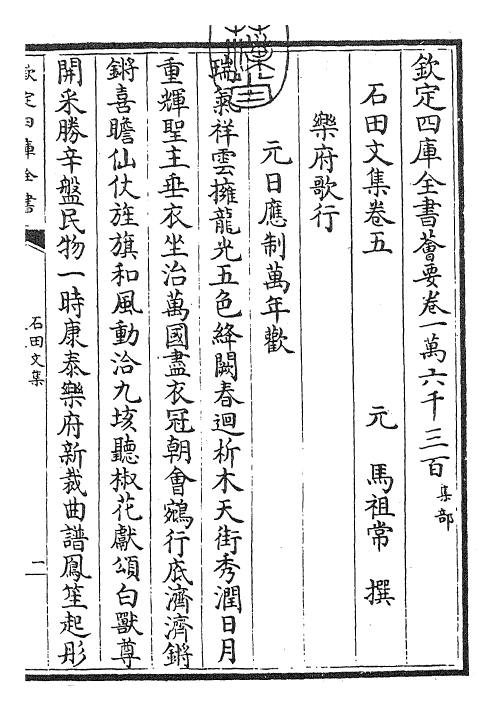 欽定四庫全書薈要卷一萬六千三百 集部
石田文集卷五 元 馬祖常 撰
樂府歌行
元日應制萬年歡
瑞氣祥雲擁龍光五色絳闕春迴析木天街秀潤日月
重輝聖主垂衣坐治萬國盡衣冠朝會鵷行底濟濟鏘
鏘喜瞻仙仗旌旗和風動洽九垓聽椒花獻頌白獸尊
開釆勝辛盤民物一時康泰樂府新裁曲譜鳳笙起彤
欽定四庫全書
石田文集
二